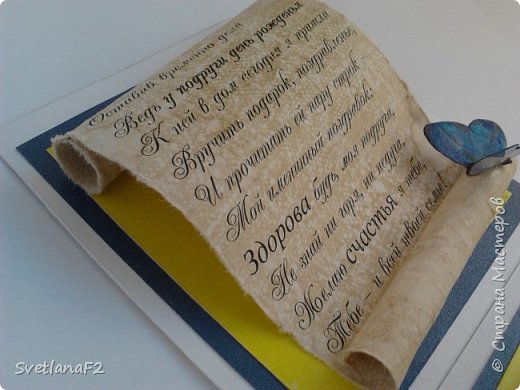 Оставив временно дела
Ведь у подруги день рожденья
К ней в дом сегодня я пришла
Вручить подарок, поздравленье,
И прочитать ей пару строк
Мой именинный поздравок!
Здорова будь, моя подруга,
Не знай ни горя, ни недуга,
Желаю счастья я тебе
Тебе - и всей твоей семье!
SvetlanaF2
© Страна Мастеров